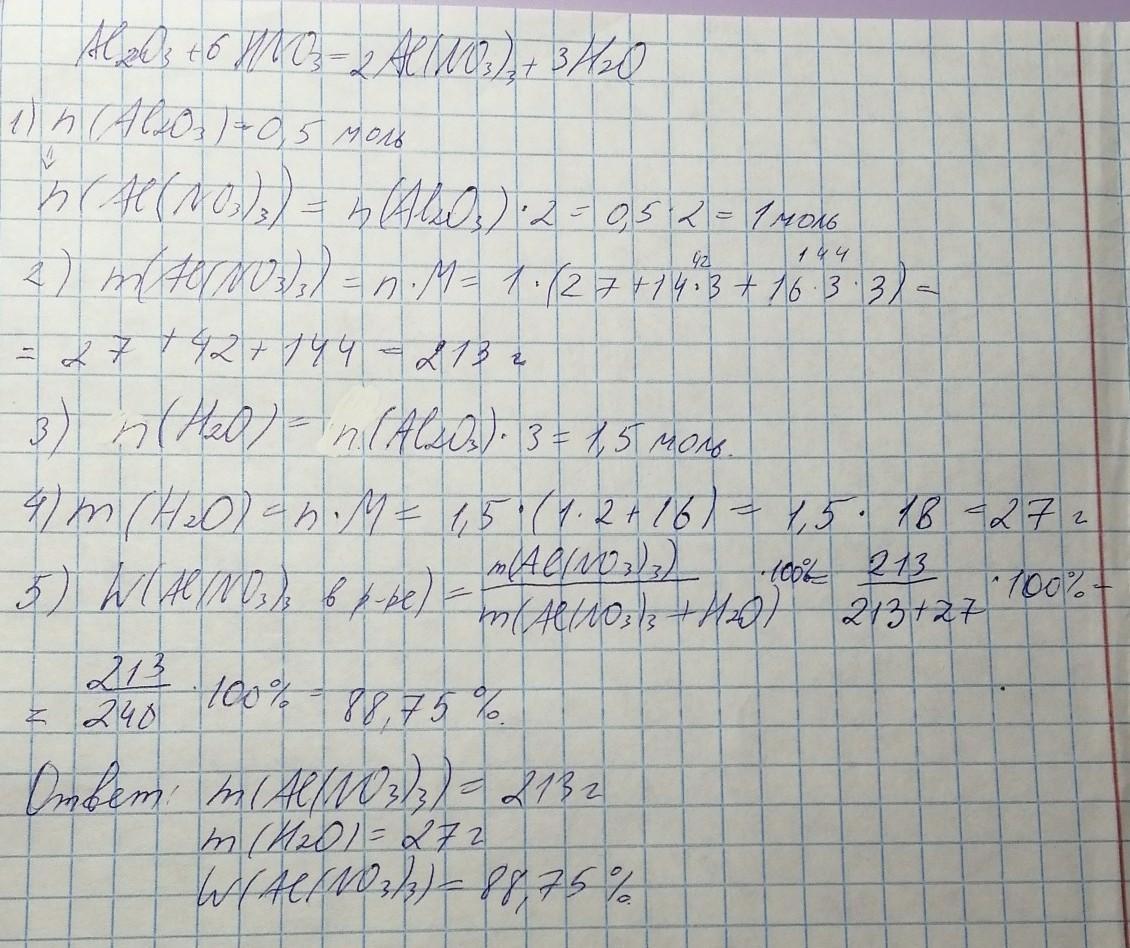 Al₂O₃ + 6 HNO₃ = 2Al(NO₃)₃ + 3H₂O
1) n(Al₂O₃) = 0,5 моль
⇓
n(Al(NO₃)₃) = n(Al₂O₃)·2 = 0,5·2 = 1 моль
42 144
2) m(Al(NO₃)₃) = n·M = 1·(27+14·3+16·3·3) =
= 27+42+144 = 213 г
3) n(H₂O) = n(Al₂O₃)·3 = 1,5 моль.
4) m(H₂O) = n·M = 1,5·(1·2+16) = 1,5·18 = 27 г
5) W(Al(NO₃)₃ в р-ре) = m(Al(NO₃)₃) / m(Al(NO₃)₃ + H₂O) ·100% = 213 / 213+27 ·100% =
= 213 / 240 ·100% = 88,75 %.
Ответ: m(Al(NO₃)₃) = 213 г
m(H₂O) = 27 г
W(Al(NO₃)₃) = 88,75 %.